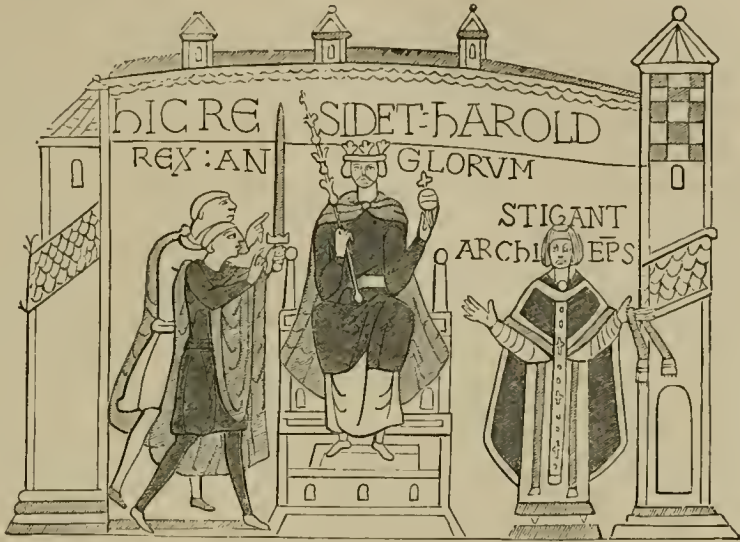 hIC RE SIDET: hAROLD
REX: AN GLORVM
STIGANT
ARChI EP̄S